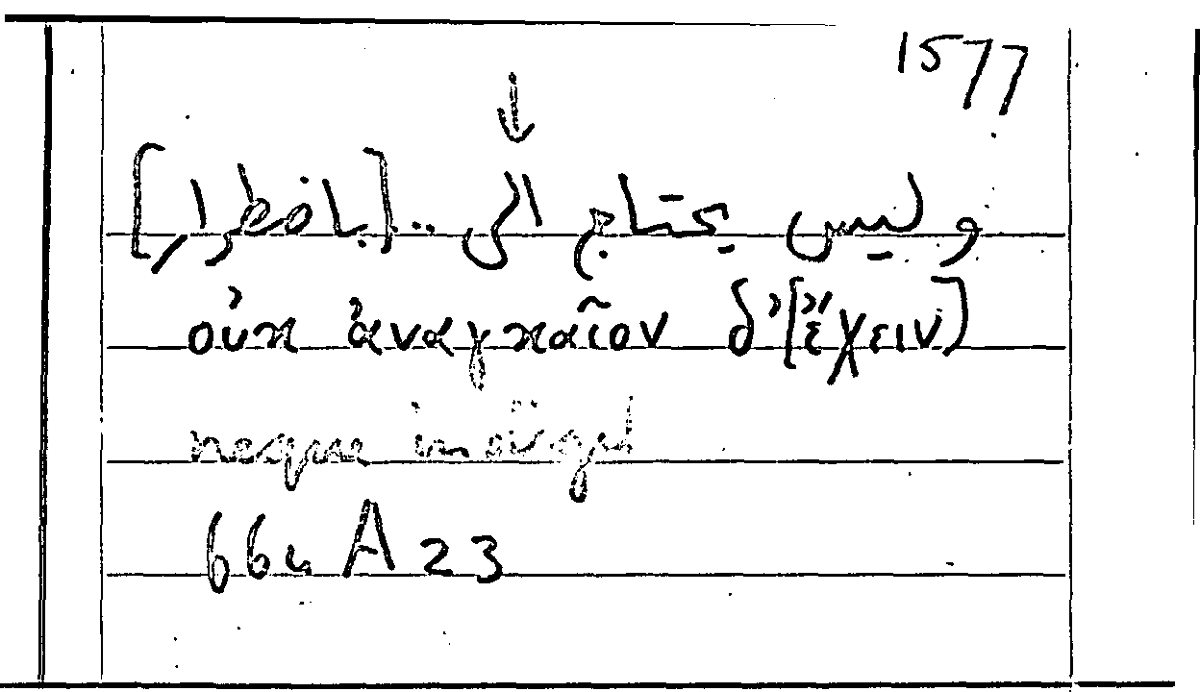 1577
↓
وليس يحتاج الى .. [باضطرار]
οὐκ ἀναγκαῖον δ’ [ἔχειν]
neque indiget
664 A 23